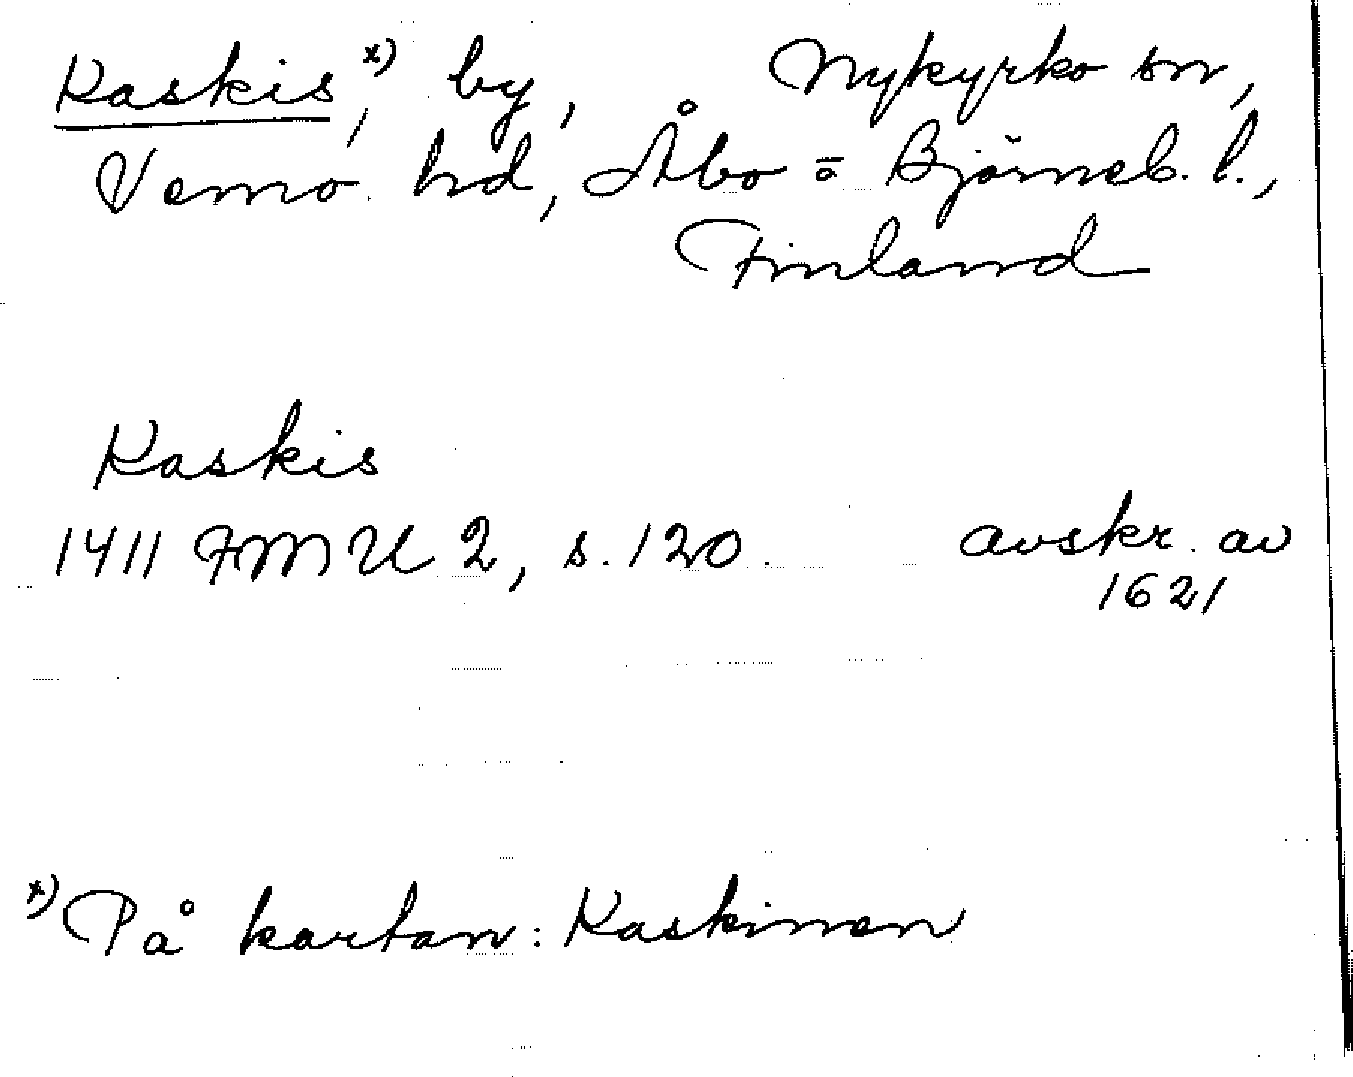 Kaskis,ˣ⁾ by, Nykyrko sn,
Vemo hd, Åbo = Björneb. l.,
Finland
Kaskis
1411 FMU 2, s. 120. avskr. av
1621
ˣ⁾ På kartan: Kaskinen